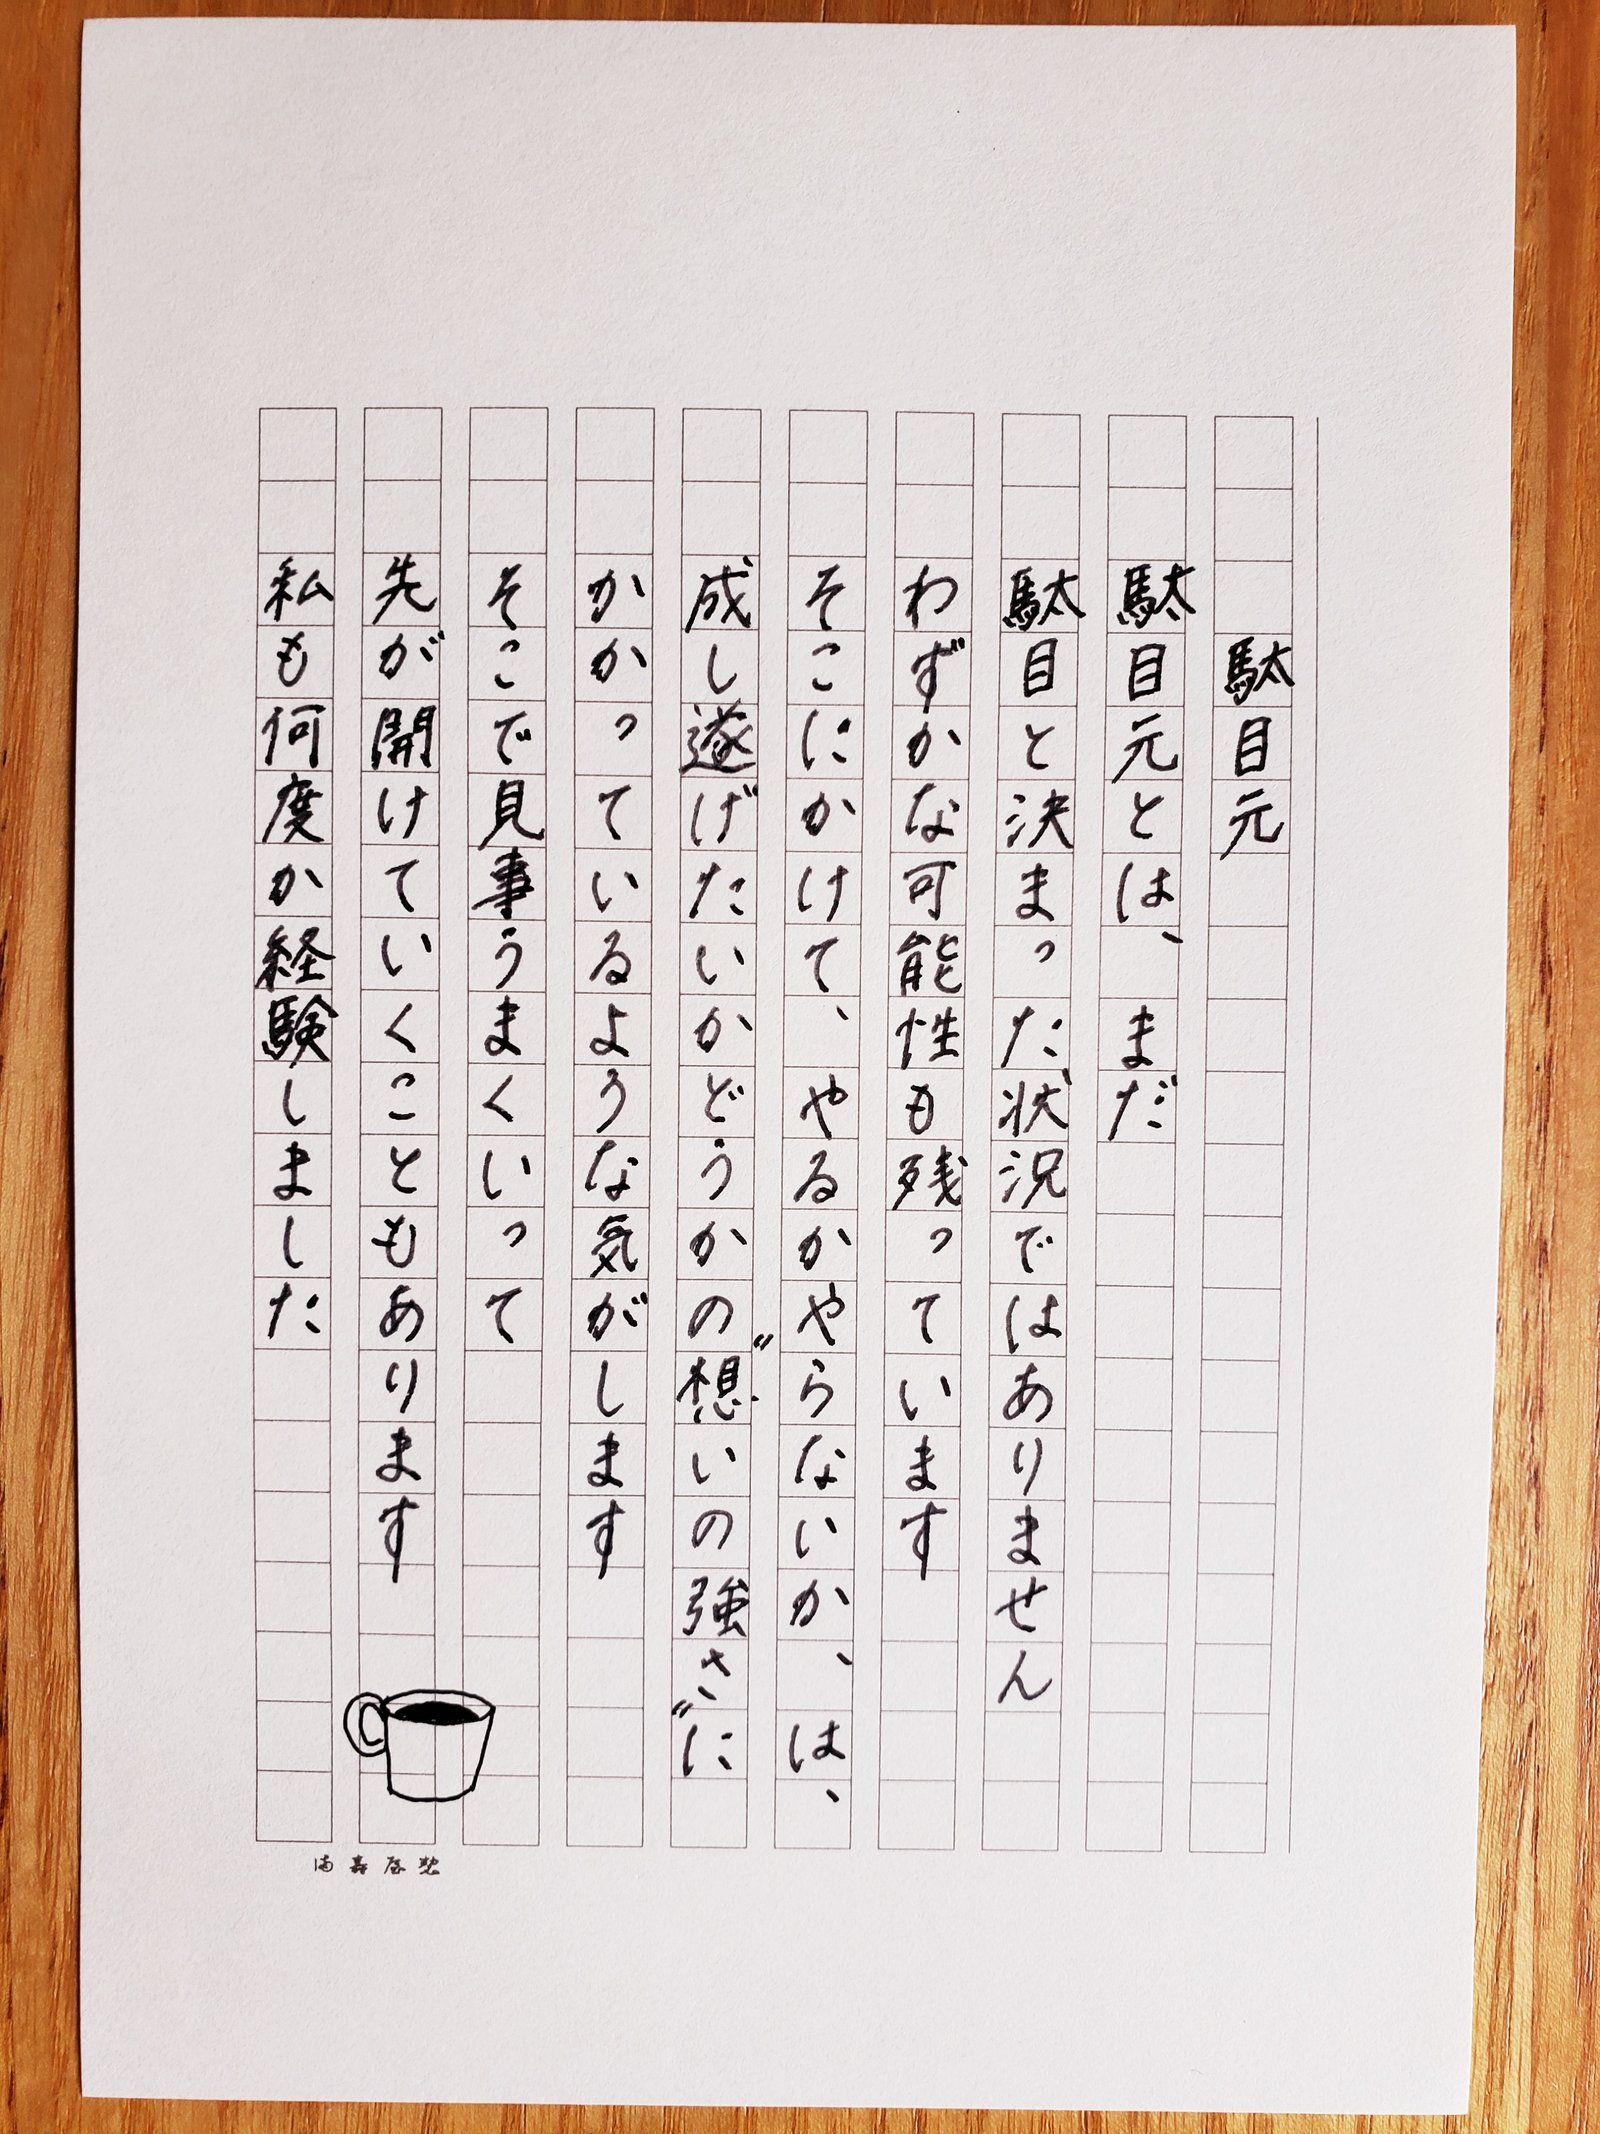 駄目元
駄目元とは、まだ
駄目と決まった状況ではありません
わずかな可能性も残っています
そこにかけて、やるかやらないか、は、
成し遂げたいかどうかの〝想いの強さ〟に
かかっているような気がします
そこで見事うまくいって
先が開けていくこともあります
私も何度か経験しました